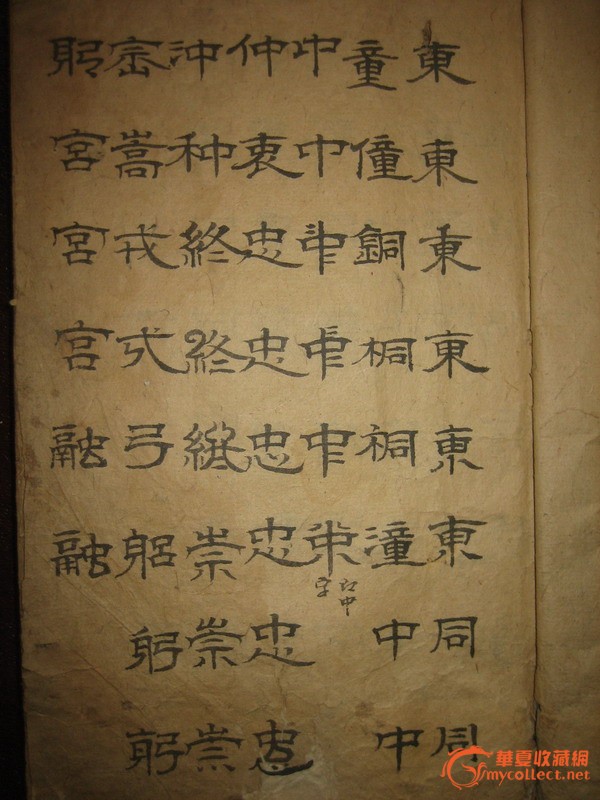 東東東東東東同同
童僮銅桐潼中中
中中中中中
中字
仲衷忠忠忠忠忠忠
沖种終終終崇崇崇
崈嵩戎弓躳躬躬
躬宮宮宮融融
華夏收藏網
mycollect.net